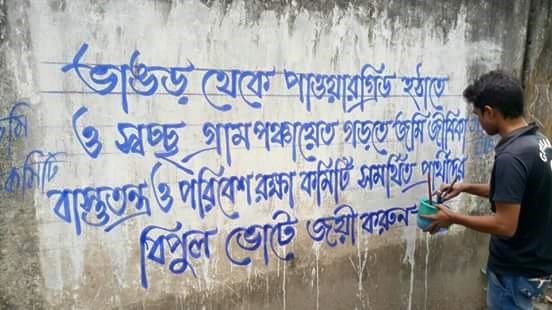 ভাঙড় থেকে পাওয়ারগ্রিড হঠাতে
ও স্বচ্ছ গ্রাম পঞ্চায়েত গড়তে জমি জীবিকা
বাস্তুতন্ত্র ও পরিবেশ রক্ষা কমিটি সমর্থিত প্রার্থীদের
বিপুল ভোটে জয়ী করুন
জমি
কমিটি